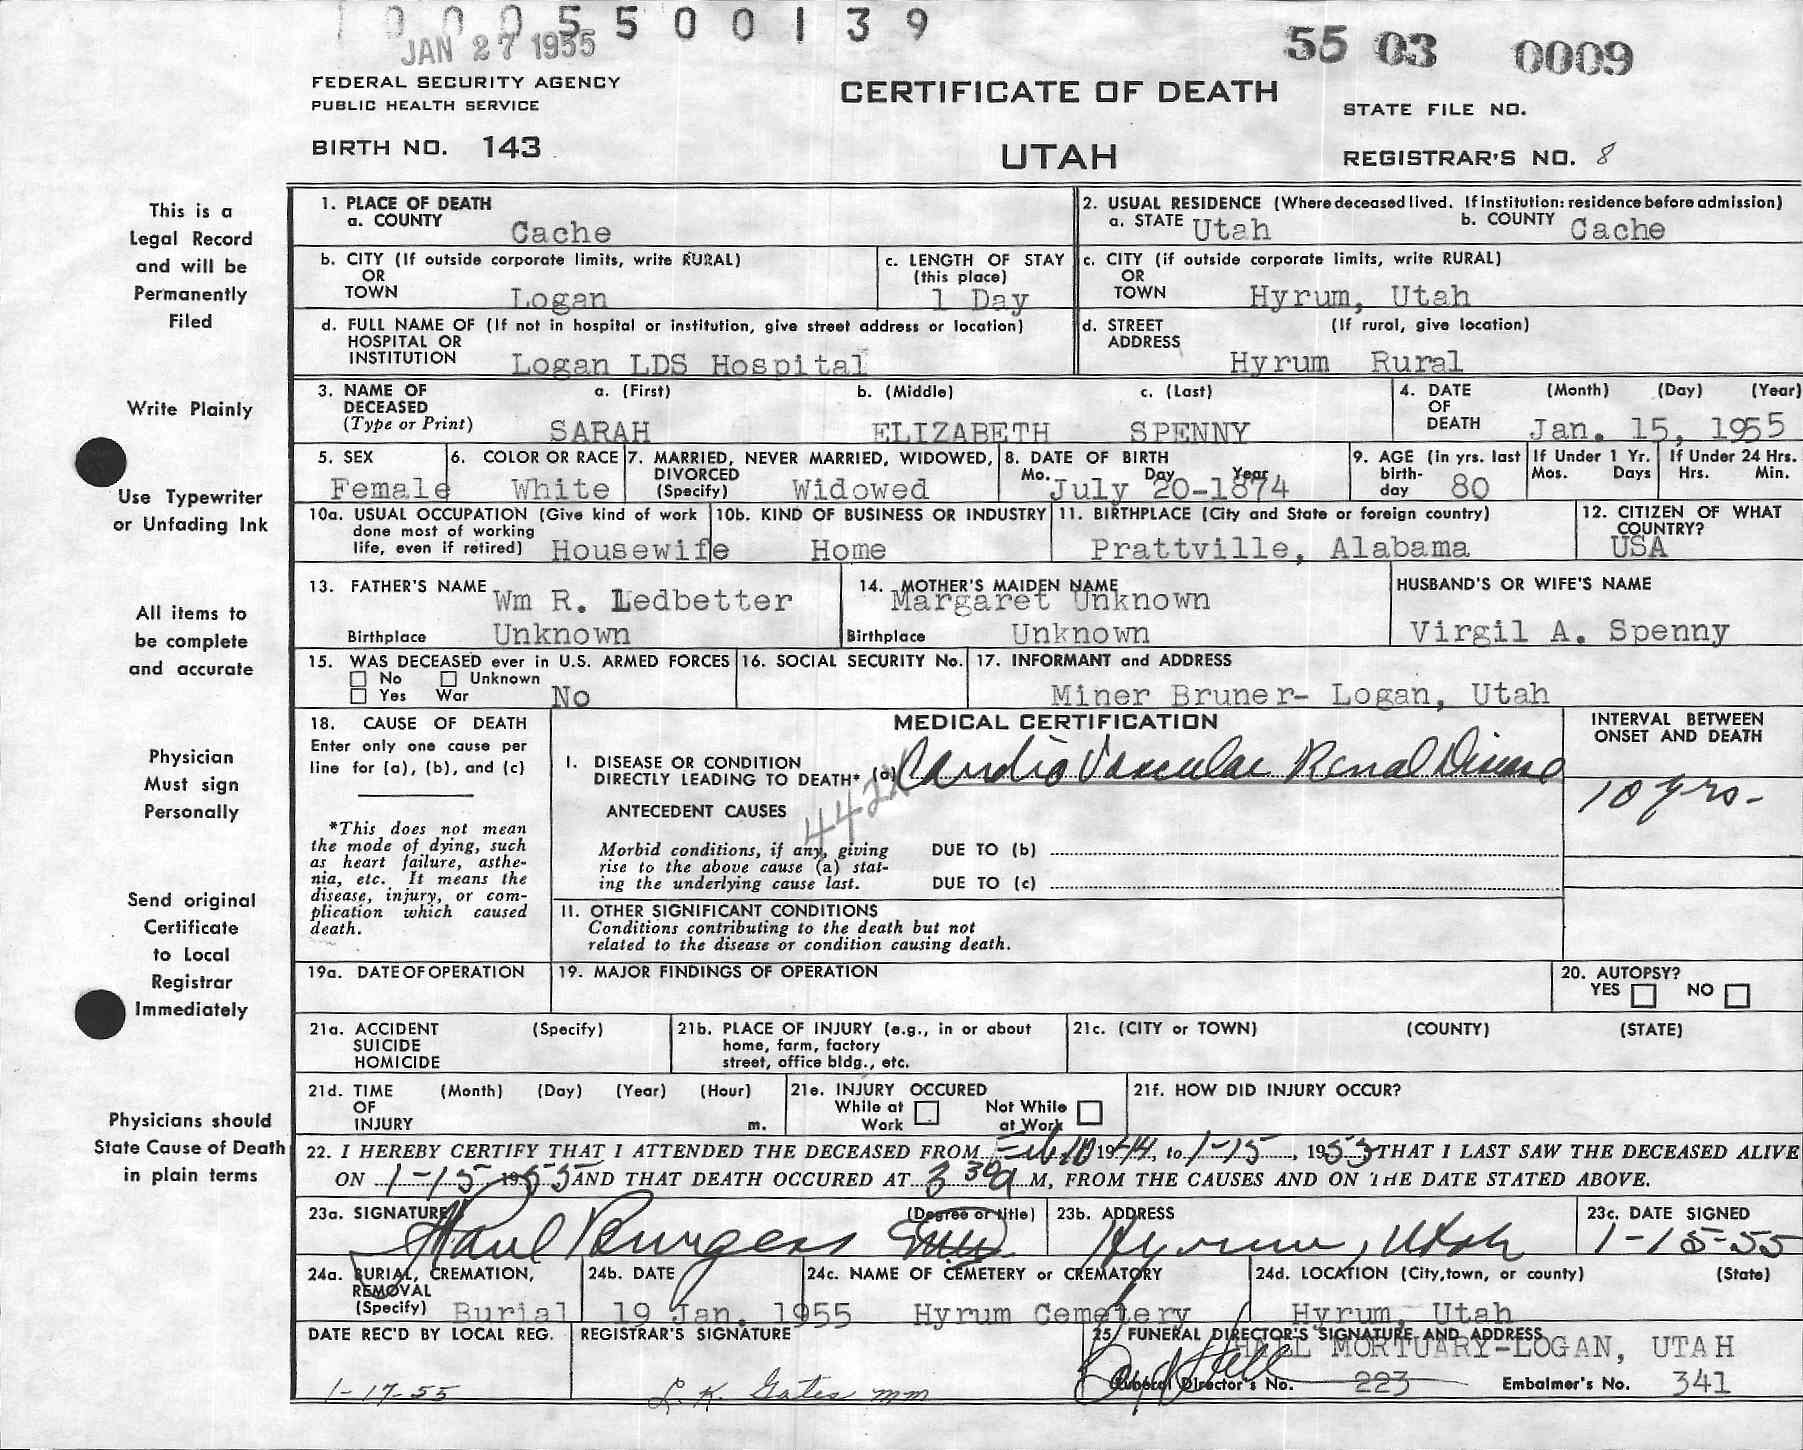 0 0 5 5 0 0 1 3 9
JAN 27 1955
55 03 0009
FEDERAL SECURITY AGENCY
PUBLIC HEALTH SERVICE
CERTIFICATE OF DEATH
STATE FILE NO.
BIRTH NO. 143
UTAH
REGISTRAR'S NO. 8
This is a
Legal Record
and will be
Permanently
Filed
Write Plainly
Use Typewriter
or Unfading Ink
All items to
be complete
and accurate
Physician
Must sign
Personally
Send original
Certificate
to Local
Registrar
Immediately
Physicians should
State Cause of Death
in plain terms
1. PLACE OF DEATH
a. COUNTY Cache
2. USUAL RESIDENCE (Where deceased lived. If institution: residence before admission)
a. STATE Utah b. COUNTY Cache
b. CITY (If outside corporate limits, write RURAL)
OR
TOWN Logan
c. LENGTH OF STAY
(this place)
1 Day
c. CITY (if outside corporate limits, write RURAL)
OR
TOWN Hyrum, Utah
d. FULL NAME OF (If not in hospital or institution, give street address or location)
HOSPITAL OR
INSTITUTION Logan LDS Hospital
d. STREET (If rural, give location)
ADDRESS
Hyrum Rural
3. NAME OF a. (First) b. (Middle) c. (Last)
DECEASED
(Type or Print) SARAH ELIZABETH SPENNY
4. DATE (Month) (Day) (Year)
OF
DEATH Jan. 15, 1955
5. SEX
Female
6. COLOR OR RACE
White
7. MARRIED, NEVER MARRIED, WIDOWED,
DIVORCED
(Specify) Widowed
8. DATE OF BIRTH
Mo. Day Year
July 20-1874
9. AGE (in yrs. last
birth-
day 80
If Under 1 Yr.
Mos. Days
If Under 24 Hrs.
Hrs. Min.
10a. USUAL OCCUPATION (Give kind of work
done most of working
life, even if retired) Housewife
10b. KIND OF BUSINESS OR INDUSTRY
Home
11. BIRTHPLACE (City and State or foreign country)
Prattville, Alabama
12. CITIZEN OF WHAT
COUNTRY?
USA
13. FATHER'S NAME Wm R. Ledbetter
Birthplace Unknown
14. MOTHER'S MAIDEN NAME
Margaret Unknown
Birthplace Unknown
HUSBAND'S OR WIFE'S NAME
Virgil A. Spenny
15. WAS DECEASED ever in U.S. ARMED FORCES
No Unknown
Yes War No
16. SOCIAL SECURITY No.
17. INFORMANT and ADDRESS
Miner Bruner- Logan, Utah
18. CAUSE OF DEATH
Enter only one cause per
line for (a), (b), and (c)
*This does not mean
the mode of dying, such
as heart failure, asthe-
nia, etc. It means the
disease, injury, or com-
plication which caused
death.
MEDICAL CERTIFICATION
I. DISEASE OR CONDITION
DIRECTLY LEADING TO DEATH* (a) Cardio Vascular Renal Disease
ANTECEDENT CAUSES
Morbid conditions, if any, giving
rise to the above cause (a) stat-
ing the underlying cause last.
DUE TO (b)
DUE TO (c)
II. OTHER SIGNIFICANT CONDITIONS
Conditions contributing to the death but not
related to the disease or condition causing death.
INTERVAL BETWEEN
ONSET AND DEATH
10 yrs.
19a. DATE OF OPERATION
19. MAJOR FINDINGS OF OPERATION
20. AUTOPSY?
YES NO
21a. ACCIDENT (Specify)
SUICIDE
HOMICIDE
21b. PLACE OF INJURY (e.g., in or about
home, farm, factory
street, office bldg., etc.
21c. (CITY or TOWN) (COUNTY) (STATE)
21d. TIME (Month) (Day) (Year) (Hour)
OF
INJURY m.
21e. INJURY OCCURED
While at Work
Not While at Work
21f. HOW DID INJURY OCCUR?
22. I HEREBY CERTIFY THAT I ATTENDED THE DECEASED FROM Feb 10 1944, to 1-15, 1955 THAT I LAST SAW THE DECEASED ALIVE
ON 1-15, 1955 AND THAT DEATH OCCURED AT 3 30 a M, FROM THE CAUSES AND ON THE DATE STATED ABOVE.
23a. SIGNATURE (Degree or title)
Paul Burgess MD
23b. ADDRESS
Hyrum, Utah
23c. DATE SIGNED
1-15-55
24a. BURIAL, CREMATION,
REMOVAL
(Specify) Burial
24b. DATE
19 Jan. 1955
24c. NAME OF CEMETERY or CREMATORY
Hyrum Cemetery
24d. LOCATION (City, town, or county) (State)
Hyrum, Utah
DATE REC'D BY LOCAL REG.
1-17-55
REGISTRAR'S SIGNATURE
L. K. Gates mm
25. FUNERAL DIRECTOR'S SIGNATURE AND ADDRESS
HALL MORTUARY-LOGAN, UTAH
Funeral Director's No. 223 Embalmer's No. 341